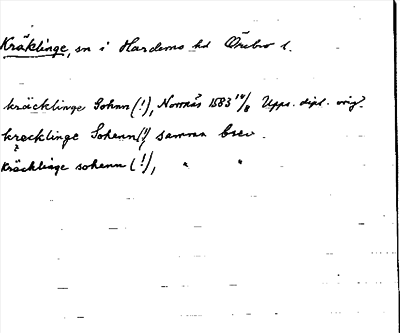 Kräklinge, sn i Hardemo hd Örebro l.
kräcklinge Sohnn (!), Norrnäs 1583 14/8 Upps. dipl. orig.
krecklinge Sohenn (!) samma brev.
?
kräcklinge sohenn (!), " "